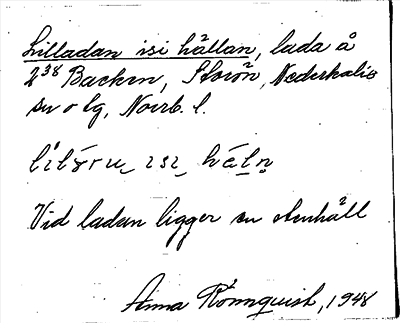 Lilladan isi hällan, lada å
2³⁸ Backen, Storön, Nederkalix
sn o lg, Norrb. l.
Vid ladan ligger en stenhäll
Anna Rönnquist, 1948